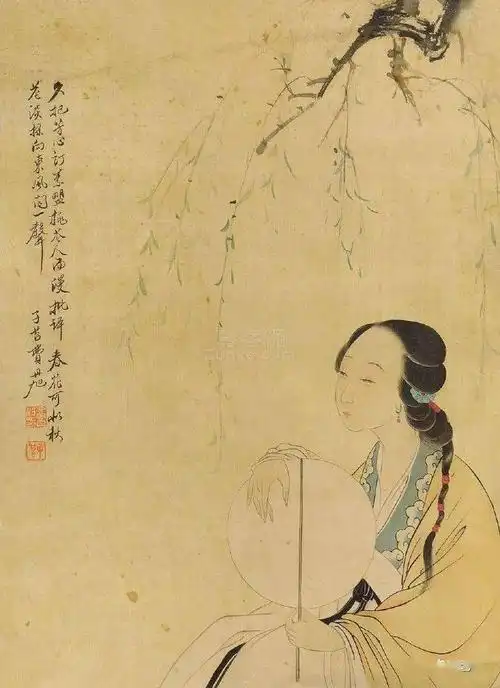 久把芳心訂素盟桃花人面漫批評春花可似秋
花淡探向東風問一聲
子苕費丹旭